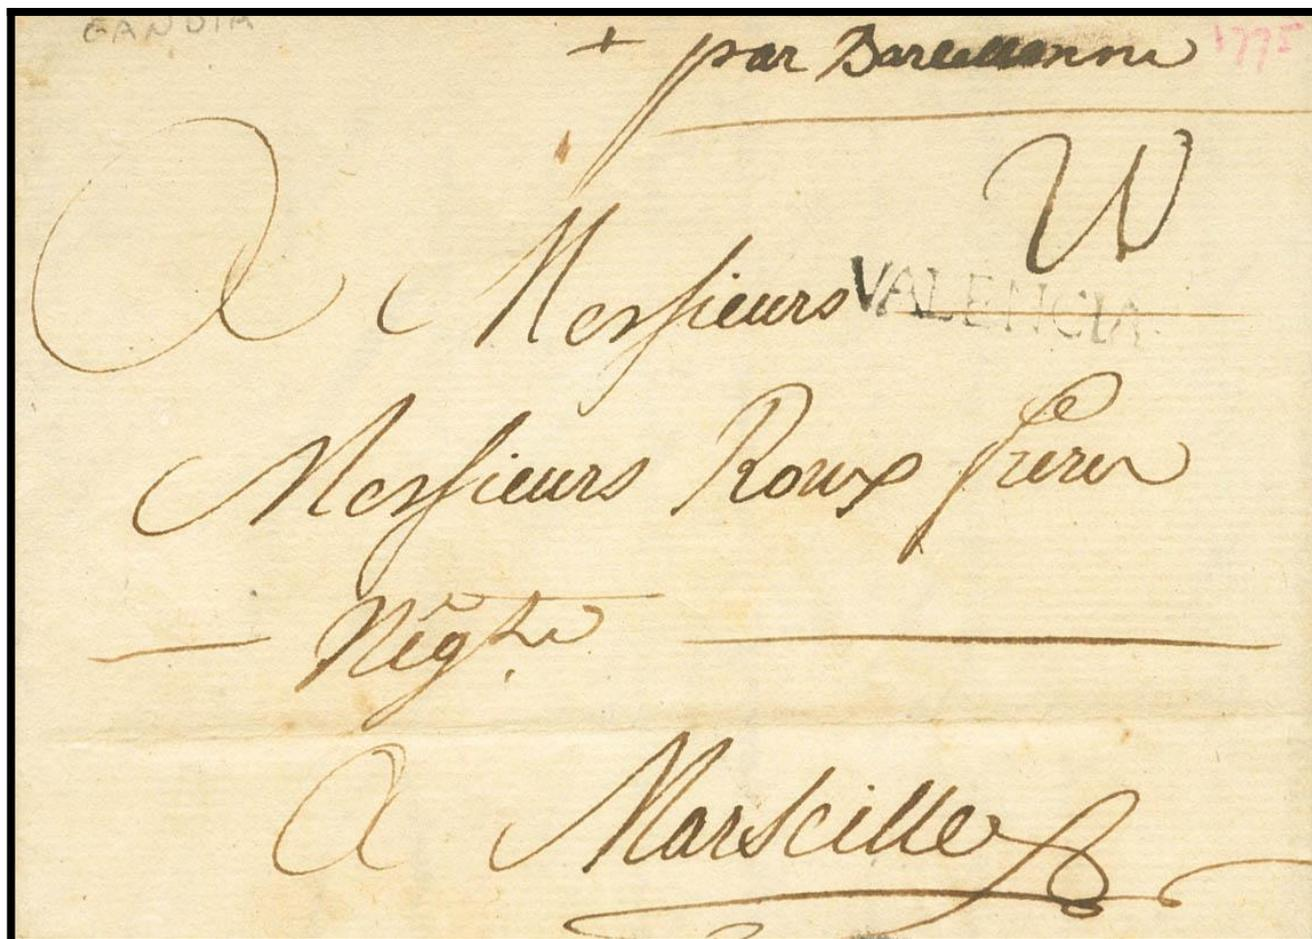 GANDIA
+ par Barcelonne 1775
A Messieurs VALENCIA
Messieurs Roux freres
Négts
A Marseille